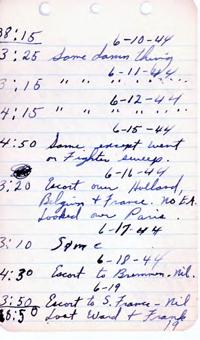 38:15
6-10-44
3:25 Same damn thing
6-11-44
3:15 " " " "
6-12-44
4:15 " " " "
6-15-44
4:50 Same except went
on Fighter sweep.
6-16-44
3:20 Escort over Holland,
Belgium & France. No EA.
Looked over Paris.
6-17-44
3:10 Same
6-18-44
4:30 Escort to Bremmen. Nil.
6-19
3:50 Escort to S. France - Nil
65:50 Lost Ward & Frank
19